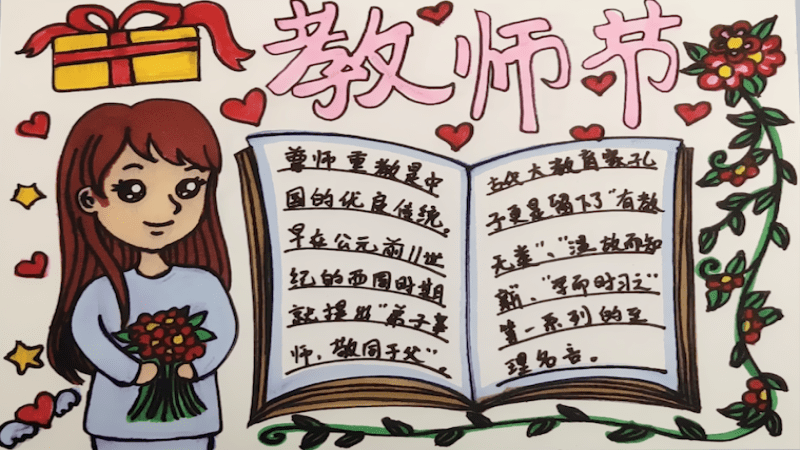 教师节
尊师重教是中
国的优良传统。
早在公元前11世
纪的西周时期
就提出“弟子事
师，敬同于父”。
古代大教育家孔
子更是留下了“有教
无类”、“温故而知
新”、“学而时习之”
等一系列的至
理名言。